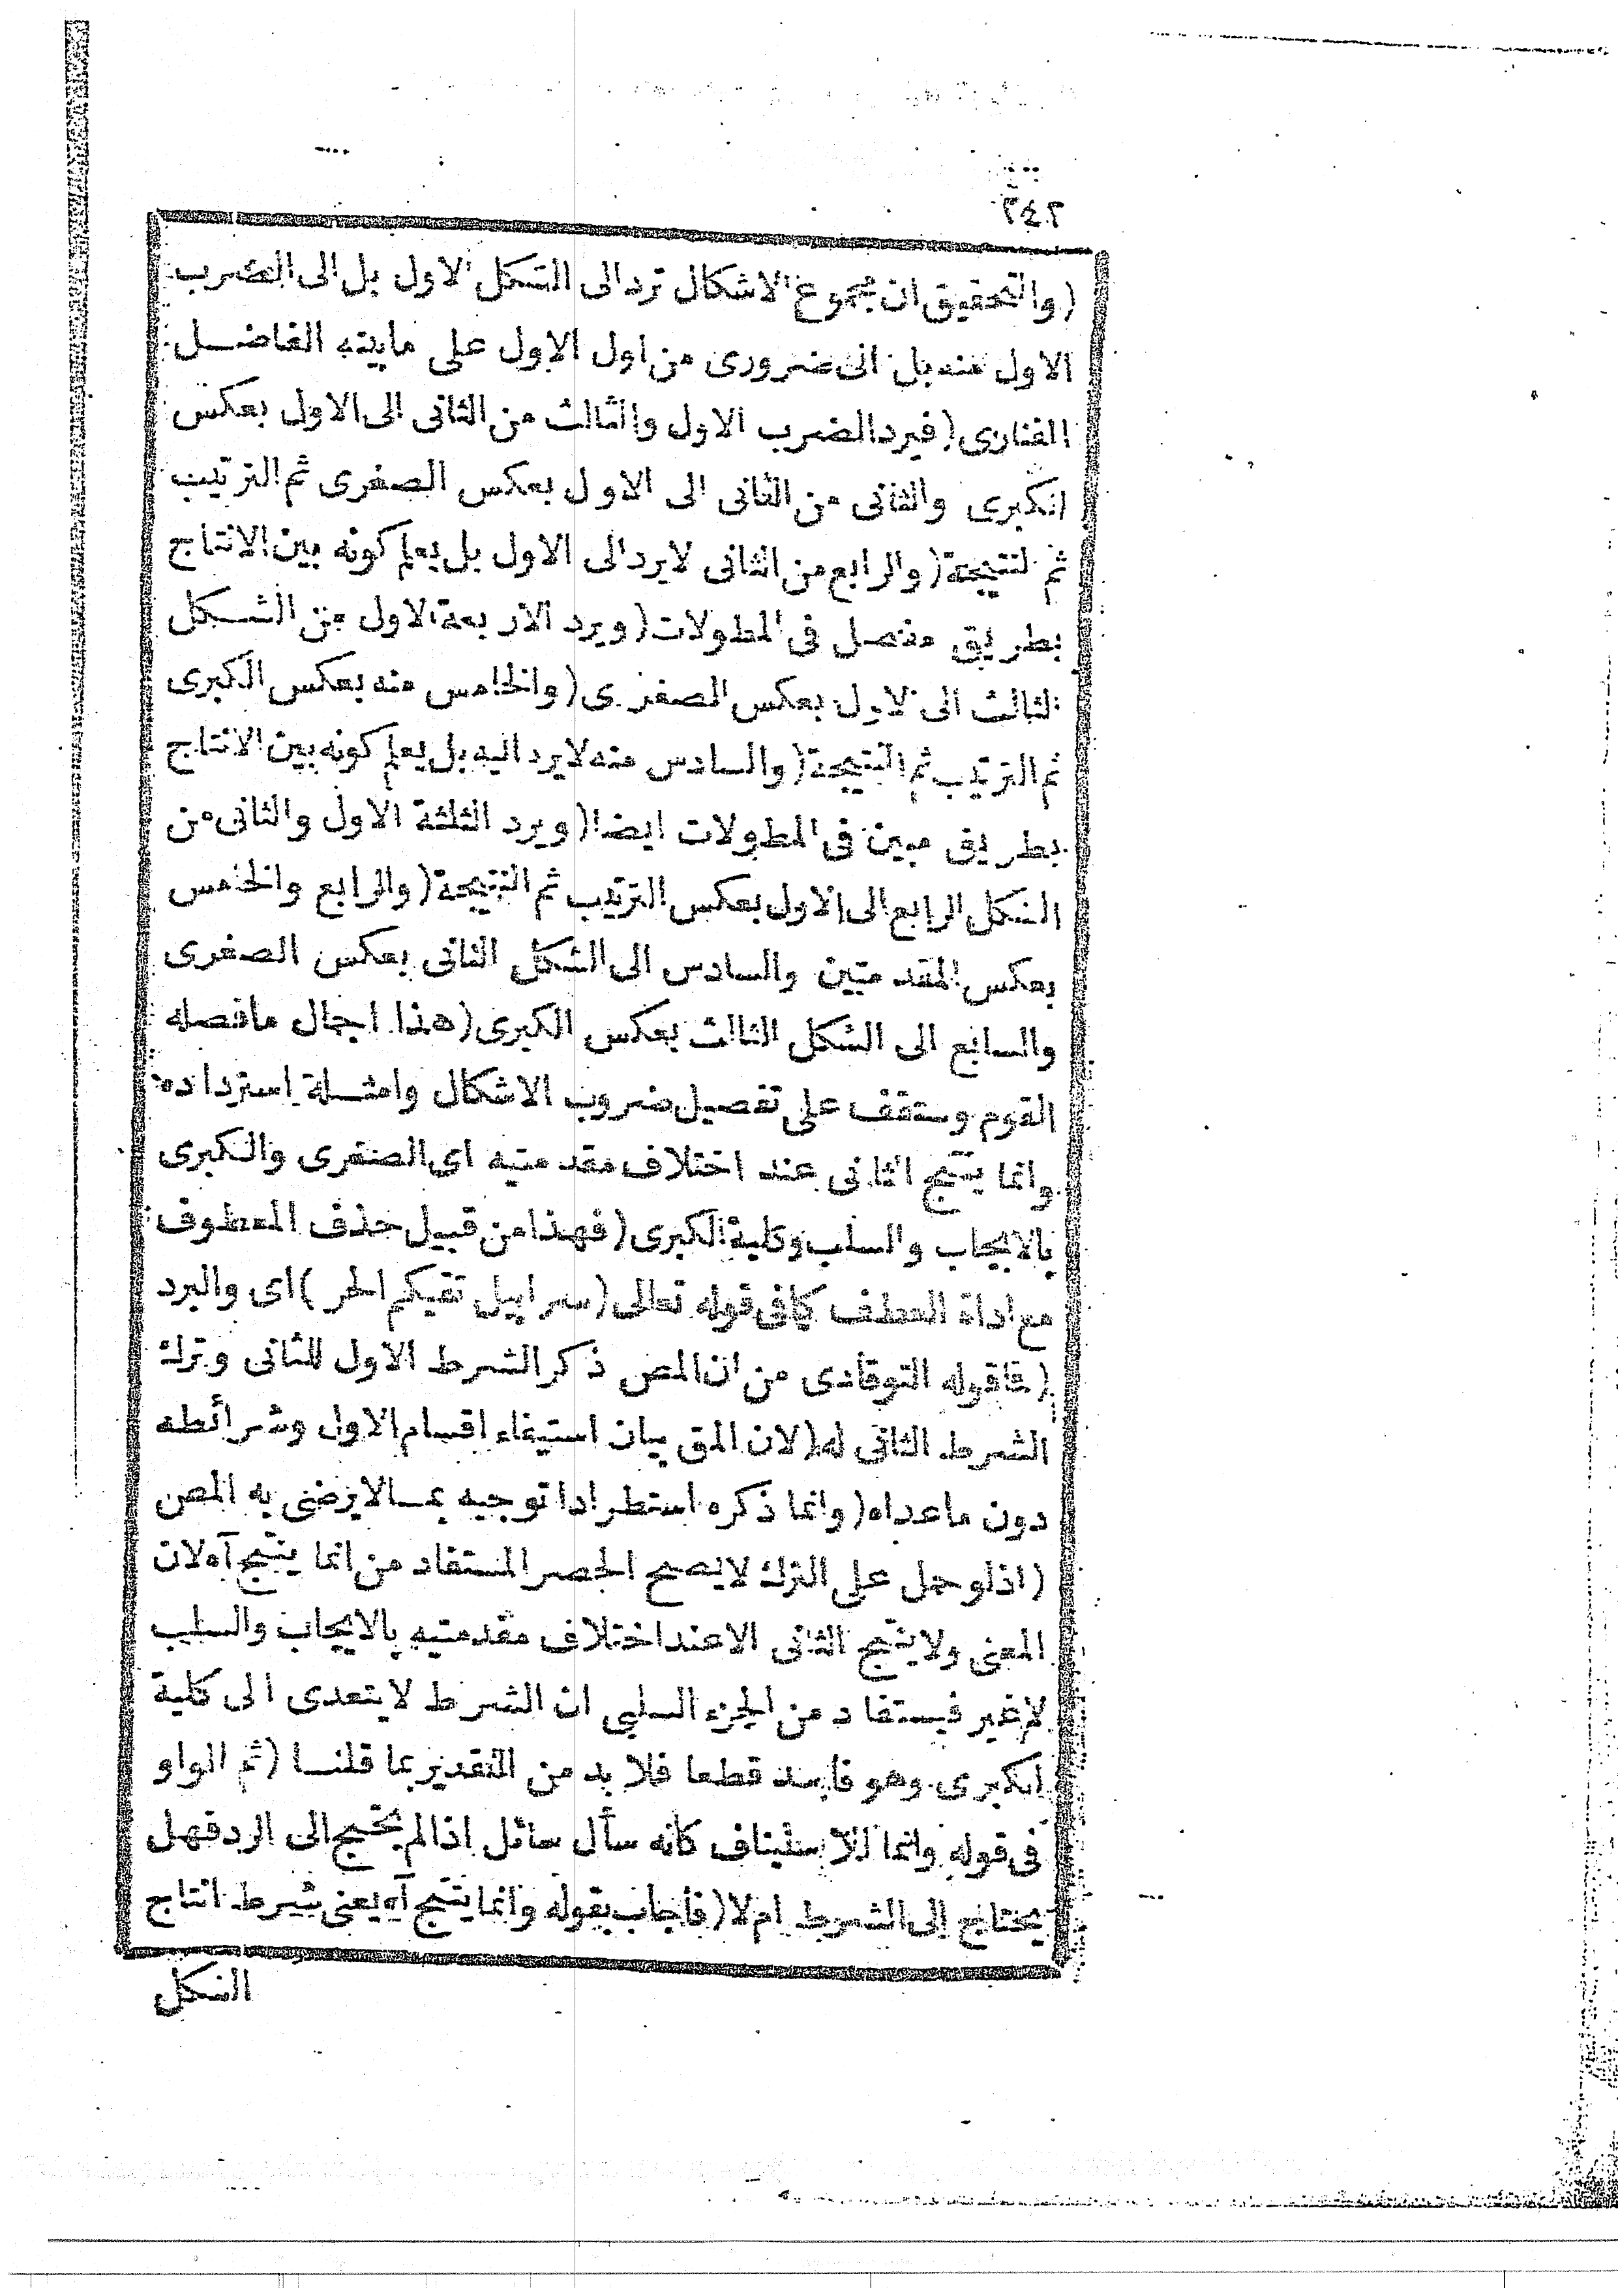 ٢٤٢
(والتحقيق ان مجموع الاشكال ترد الى الشكل الاول بل الى الضرب
الاول منه بل الى ضرورى من اول الاول على مابينه الفاضل
الفنارى (فيرد الضرب الاول والثالث من الثانى الى الاول بعكس
الكبرى والثانى من الثانى الى الاول بعكس الصغرى ثم الترتيب
ثم النتيجة (والرابع من الثانى لايرد الى الاول بل يعلم كونه بين الانتاج
بطريق مفصل فى المطولات (ويرد الاربعة الاول من الشكل
الثالث الى الاول بعكس الصغرى (والخامس منه بعكس الكبرى
ثم الترتيب ثم النتيجة (والسادس منه لايرد اليه بل يعلم كونه بين الانتاج
بطريق مبين فى المطولات ايضا (ويرد الثلثة الاول والثانى من
الشكل الرابع الى الاول بعكس الترتيب ثم النتيجة (والرابع والخامس
بعكس المقدمتين والسادس الى الشكل الثانى بعكس الصغرى
والسابع الى الشكل الثالث بعكس الكبرى (هذا اجمال مافصله
القوم وستقف على تفصيل ضروب الاشكال وامثلة استرداده
وانما ينتج الثانى عند اختلاف مقدمتيه اى الصغرى والكبرى
بالايجاب والسلب وكلية الكبرى (فهذا من قبيل حذف المعطوف
مع اداة العطف كمافى قوله تعالى (سرابيل تقيكم الحر) اى والبرد
(فاقوله التوقادى من ان المص ذكر الشرط الاول للثانى وترك
الشرط الثانى له (لان المق بيان استيفاء اقسام الاول وشرائطه
دون ماعداه (وانما ذكره استطرادا توجيه بمالايرضى به المص
(اذلو حمل على الترك لايصح الحصر المستفاد من انما ينتج آه لان
المعنى ولاينتج الثانى الاعند اختلاف مقدمتيه بالايجاب والسلب
لاغير فيستفاد من الجزء السلبى ان الشرط لايتعدى الى كلية
الكبرى وهو فاسد قطعا فلابد من التقدير بما قلنا (ثم الواو
فى قوله وانما للاستيناف كأنه سأل سائل اذالم يحتج الى الرد فهل
يحتاج الى الشرط ام لا (فأجاب بقوله وانما ينتج آه يعنى شرط انتاج
الشكل